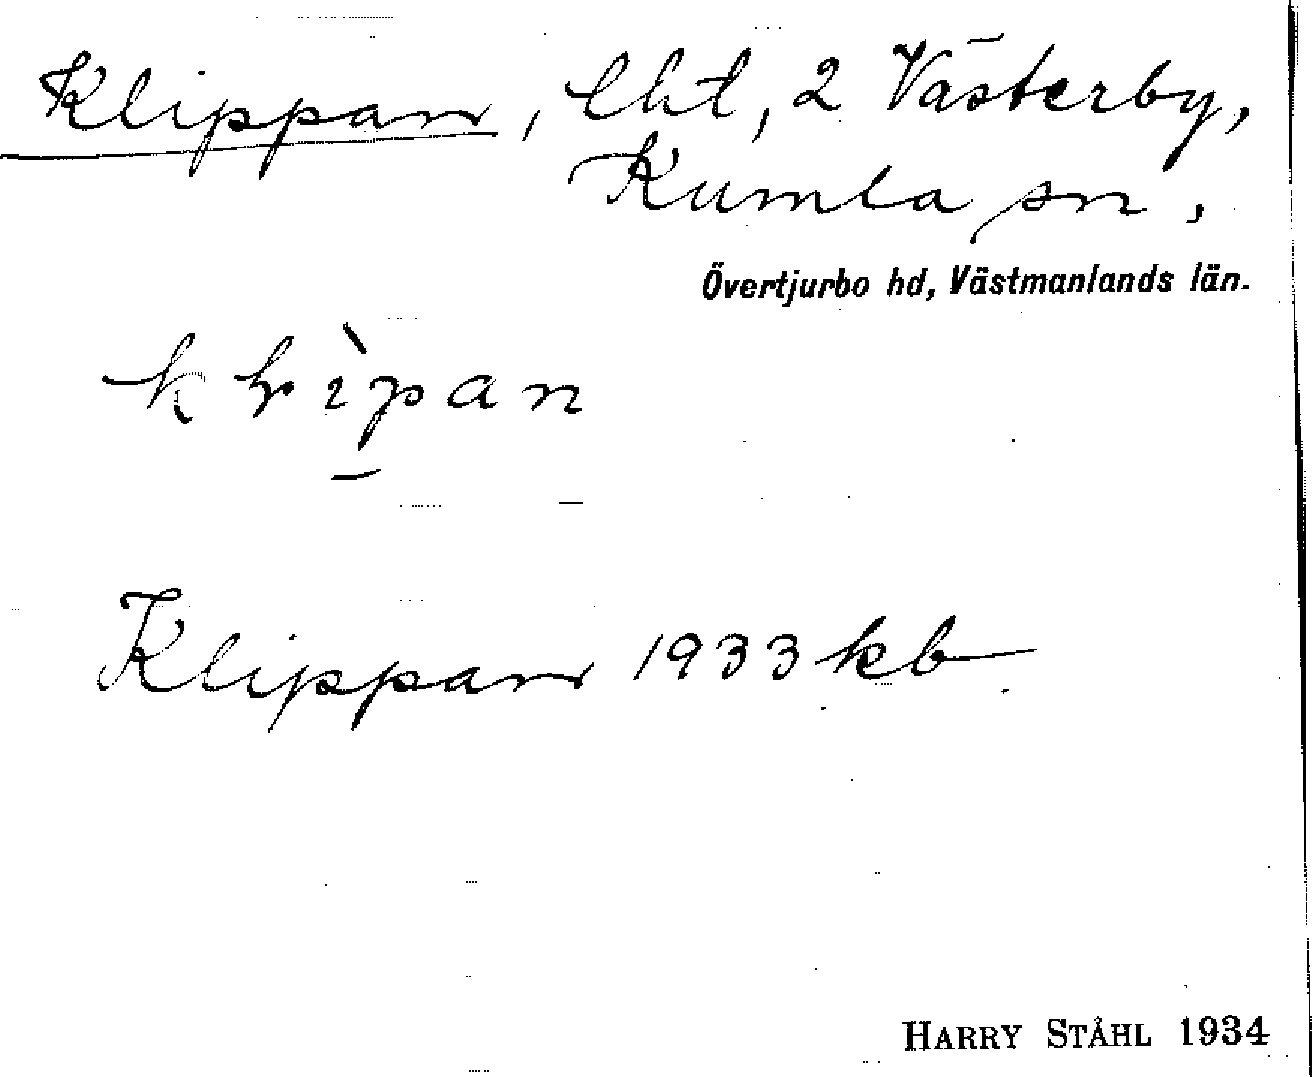 Klippan, lht, 2 Västerby,
Kumla sn,
Övertjurbo hd, Västmanlands län.
Klippan 1933 kb
HARRY STÅHL 1934